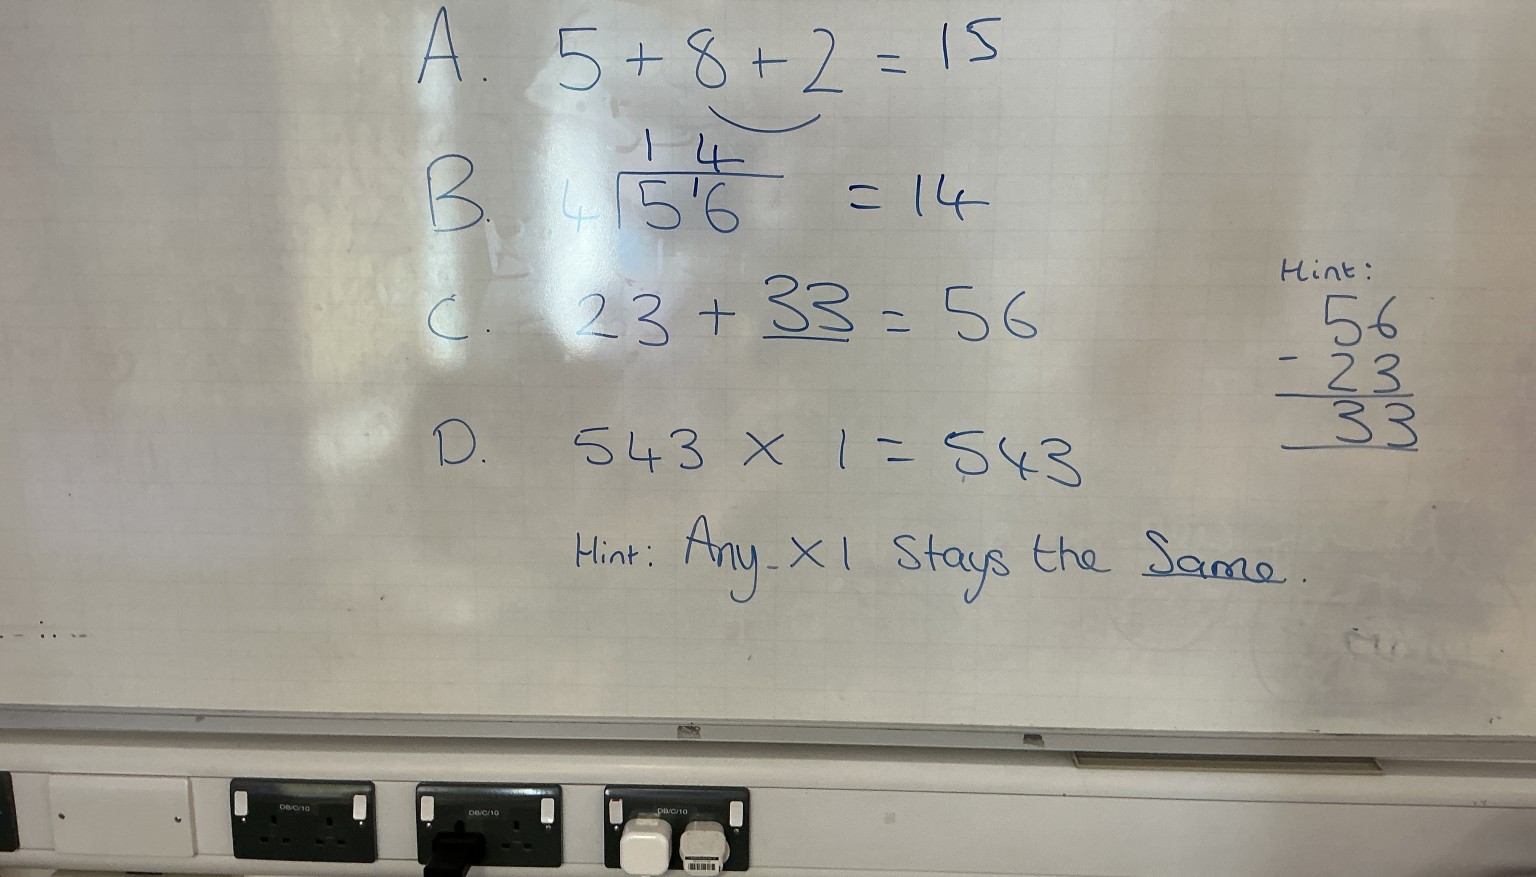 A. 5 + 8 + 2 = 15
1 4
B. 4 5 ¹6 = 14
C. 23 + 33 = 56
Hint:
56
- 23
33
D. 543 × 1 = 543
Hint: Any - × 1 Stays the Same.
DB/C/10
DB/C/10
DB/C/10